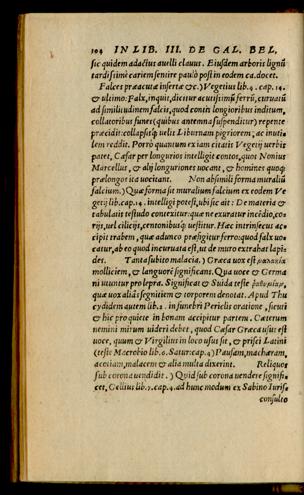 104 IN LIB. III. DE GAL. BEL.
sic quidem adactius auelli clauus. Eiusdem arboris lignū
tardissimè cariem sentire paulò post in eodem ca. docet.
Falces præacutæ insertæ &c.) Vegetius lib. 4. cap. 14.
& ultimo: Falx, inquit, dicitur acutissimū ferrū, curuatū
ad similitudinem falcis, quod contis longioribus inditum,
collatoribus funes (quibus antenna suspenditur) repente
præcidit: collapsisq́; uelis Liburnam pigriorem, ac inuti
lem reddit. Porrò quantum ex iam citatis Vegetij uerbis
patet, Cæsar per longurios intelligit contos, quos Nonius
Marcellus, & alij longuriones uocant, & homines quoq;
prælongos ita uocitant. Non absimili forma muraliū
falcium.) Quæ forma sit muralium falcium ex eodem Ve
getij lib. cap. 14. intelligi potest, ubi sic ait: De materia &
tabulatis testudo contexitur: quæ ne exuratur incēdio, co-
rijs, uel cilicijs, centonibusq́; uestitur. Hæc intrinsecus ac
cipit trabem, quæ adunco præfigitur ferro: quod falx uo-
catur, ab eo quod incuruata est, ut de muro extrahat lapi-
des. Tanta subito malacia.) Græca uox est μαλακία
molliciem, & languorē significans. Qua uoce & Germa
ni utuntur pro lepra. Significat & Suidæ teste ῥαθυμίαν,
quæ uox alias segnitiem & torporem denotat. Apud Thu
cydidem autem lib. 2. in funebri Periclis oratione, sicuti
& hic pro quiete in bonam accipitur partem. Cæterum
nemini mirum uideri debet, quod Cæsar Græca usus est
uoce, quum & Virgilius in loco usus sit, & prisci Latini
(teste Macrobio lib. 6. Satur: cap. 4) Pausam, machæram,
acediam, malacem & alia multa dixerint. Reliquos
sub corona uendidit.) Quid sub corona uendere signifi-
cet, Gellius lib. 7. cap. 4. ad hunc modum ex Sabino Iuris-
consulto